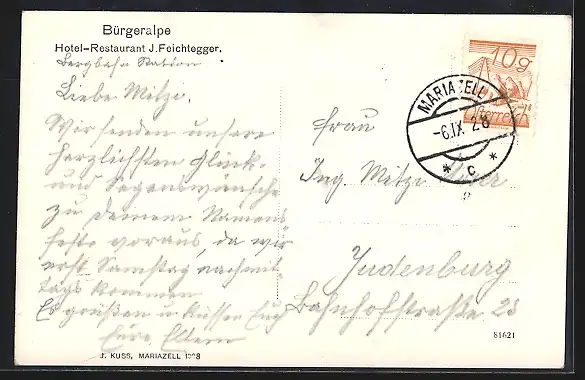 Bürgeralpe
Hotel-Restaurant J. Feichtegger.
Bergbahn Station
Liebe Mitzi.
Wir senden unsere
herzlichsten Glück-
und Segenswünsche
zu deinem Namens
feste voraus, da wir
erst Samstag nachmit-
tags kommen
Es grüßen u küssen Euch
Eure Eltern
J. KUSS, MARIAZELL 1928
10g
Österreich
MARIAZELL
-6.IX.28
* c *
Frau
Ing. Mitzi
Judenburg
Bahnhofstraße 28
81621